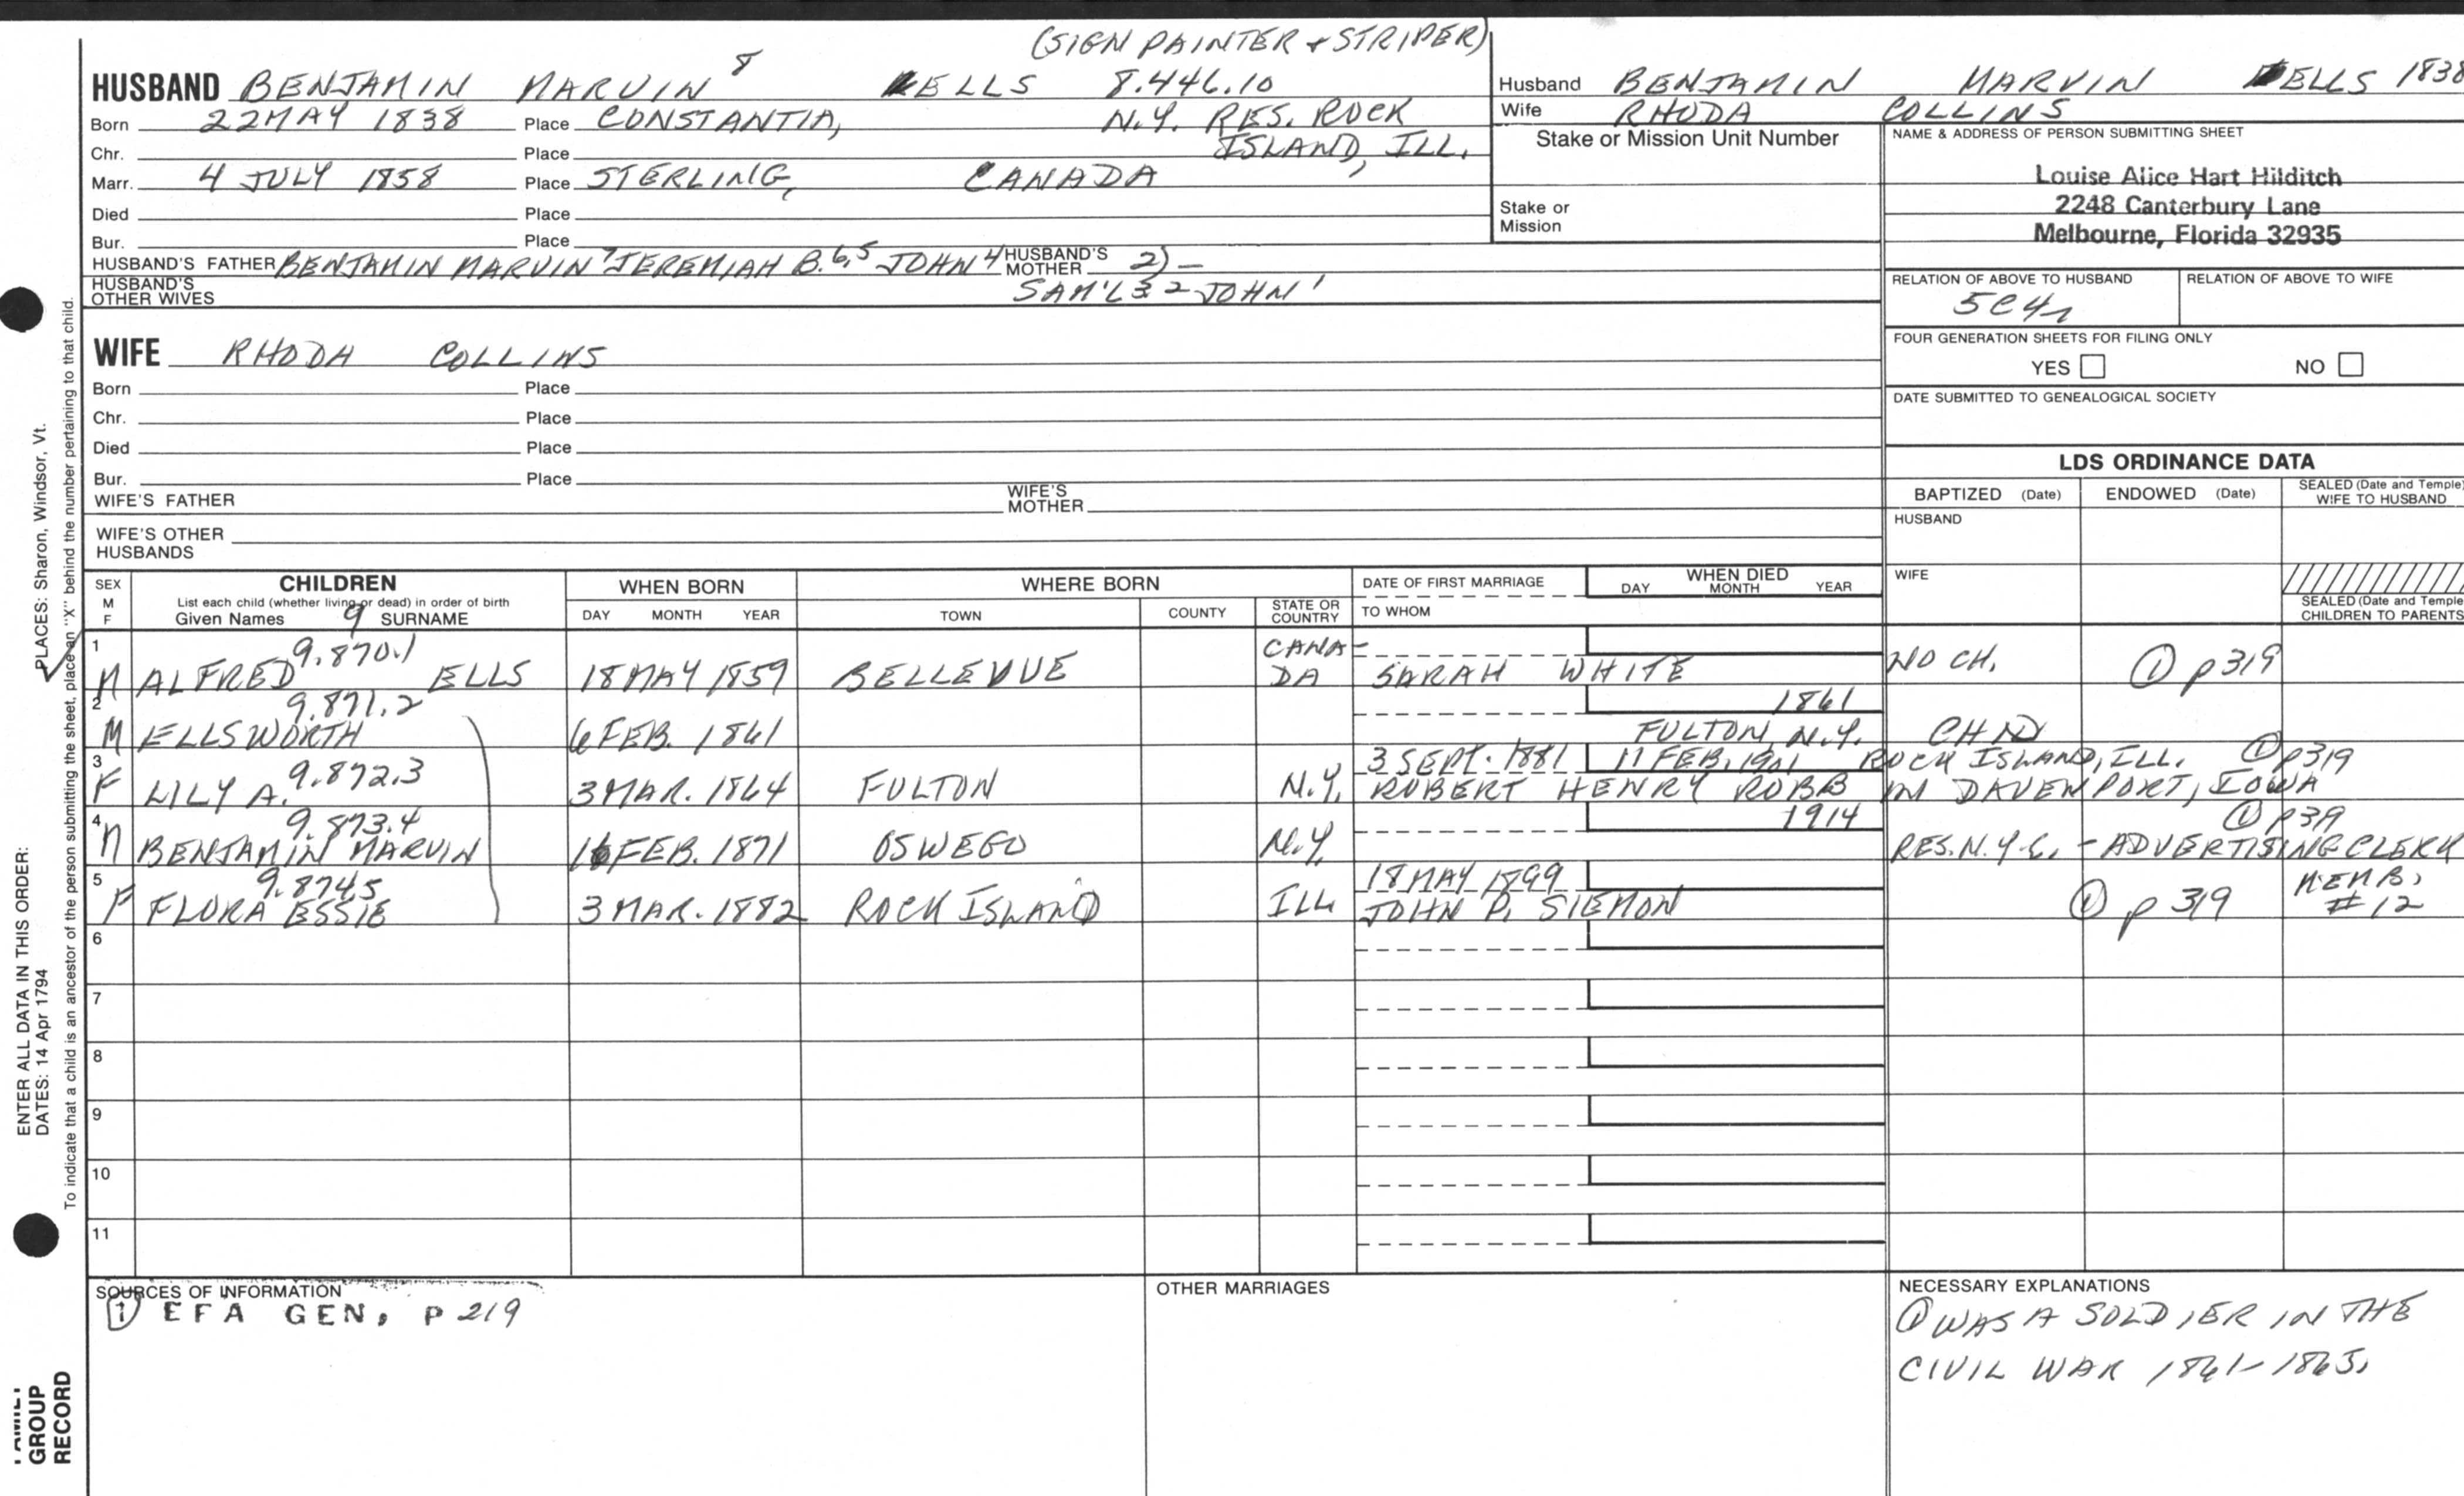 (SIGN PAINTER & STRIPER)
HUSBAND BENJAMIN MARVIN 8 ELLS 8.446.10
Born 22 MAY 1838 Place CONSTANTIA, N.Y. RES. ROCK
Chr. Place ISLAND, ILL.
Marr. 4 JULY 1858 Place STERLING, CANADA
Died Place
Bur. Place
HUSBAND'S FATHER BENJAMIN MARVIN 7 JEREMIAH B. 6,5 JOHN 4 HUSBAND'S MOTHER 2) —
HUSBAND'S OTHER WIVES SAM'L 3 2 JOHN 1
WIFE RHODA COLLINS
Born Place
Chr. Place
Died Place
Bur. Place
WIFE'S FATHER WIFE'S MOTHER
WIFE'S OTHER HUSBANDS
Husband BENJAMIN MARVIN ELLS 1838
Wife RHODA COLLINS
Stake or Mission Unit Number
Stake or Mission
NAME & ADDRESS OF PERSON SUBMITTING SHEET
Louise Alice Hart Hilditch
2248 Canterbury Lane
Melbourne, Florida 32935
RELATION OF ABOVE TO HUSBAND RELATION OF ABOVE TO WIFE
5C4r
FOUR GENERATION SHEETS FOR FILING ONLY
YES NO
DATE SUBMITTED TO GENEALOGICAL SOCIETY
LDS ORDINANCE DATA
BAPTIZED (Date) ENDOWED (Date) SEALED (Date and Temple) WIFE TO HUSBAND
HUSBAND
WIFE
SEALED (Date and Temple
CHILDREN TO PARENTS
SEX M F CHILDREN WHEN BORN WHERE BORN DATE OF FIRST MARRIAGE WHEN DIED
List each child (whether living or dead) in order of birth
Given Names 9 SURNAME DAY MONTH YEAR TOWN COUNTY STATE OR COUNTRY TO WHOM DAY MONTH YEAR
1 M ALFRED 9.870.1 ELLS 18 MAY 1859 BELLEVUE CANA-DA SARAH WHITE NO CH. ① p 319
2 M ELLSWORTH 9.871.2 6 FEB. 1861 1861 FULTON, N.Y. CHND
3 F LILY A. 9.872.3 3 MAR. 1864 FULTON N.Y. 3 SEPT. 1881 11 FEB. 1901 ROCK ISLAND, ILL. ① p319
ROBERT HENRY ROBB M DAVENPORT, IOWA
4 M BENJAMIN MARVIN 9.873.4 16 FEB. 1871 OSWEGO N.Y. 1914 ① p 39
RES. N.Y.C. - ADVERTISING CLERK
5 F FLORA ESSIE 9.874.5 3 MAR. 1882 ROCK ISLAND ILL 18 MAY 1899 JOHN P. SIEMON ① p 319 MEMB. # 12
6
7
8
9
10
11
SOURCES OF INFORMATION
① EFA GEN, P 219
OTHER MARRIAGES
NECESSARY EXPLANATIONS
① WAS A SOLDIER IN THE
CIVIL WAR 1861-1865.
PLACES: Sharon, Windsor, Vt.
ENTER ALL DATA IN THIS ORDER:
DATES: 14 Apr 1794
To indicate that a child is an ancestor of the person submitting the sheet, place an "X" behind the number pertaining to that child.
GROUP
RECORD